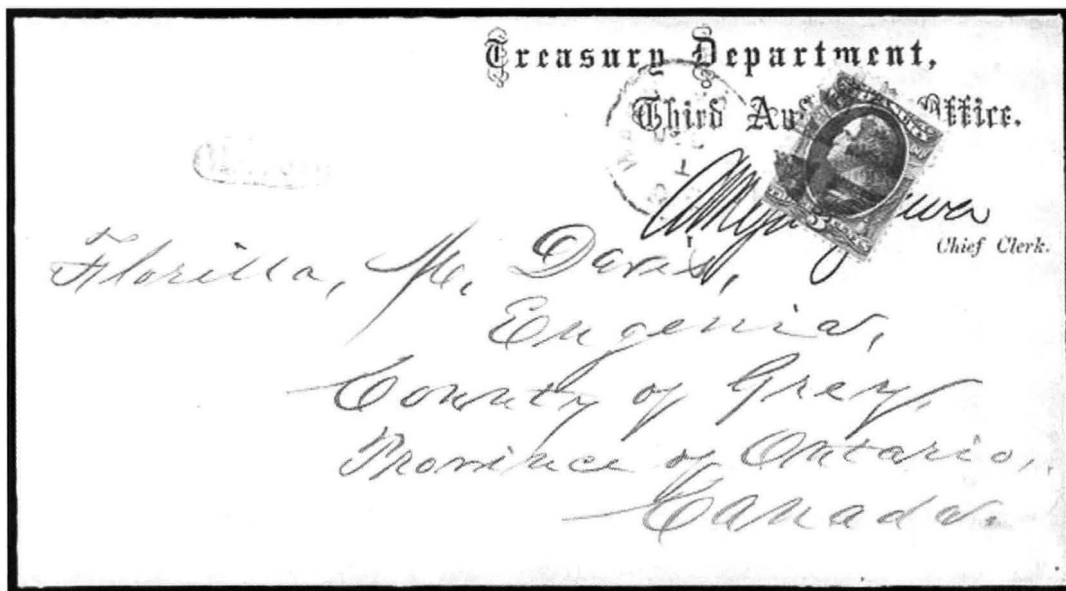 Treasury Department,
Third Au Office.
Chief Clerk.
Florilla, M. Davis,
Eugenia,
County of Grey,
Province of Ontario,
Canada.